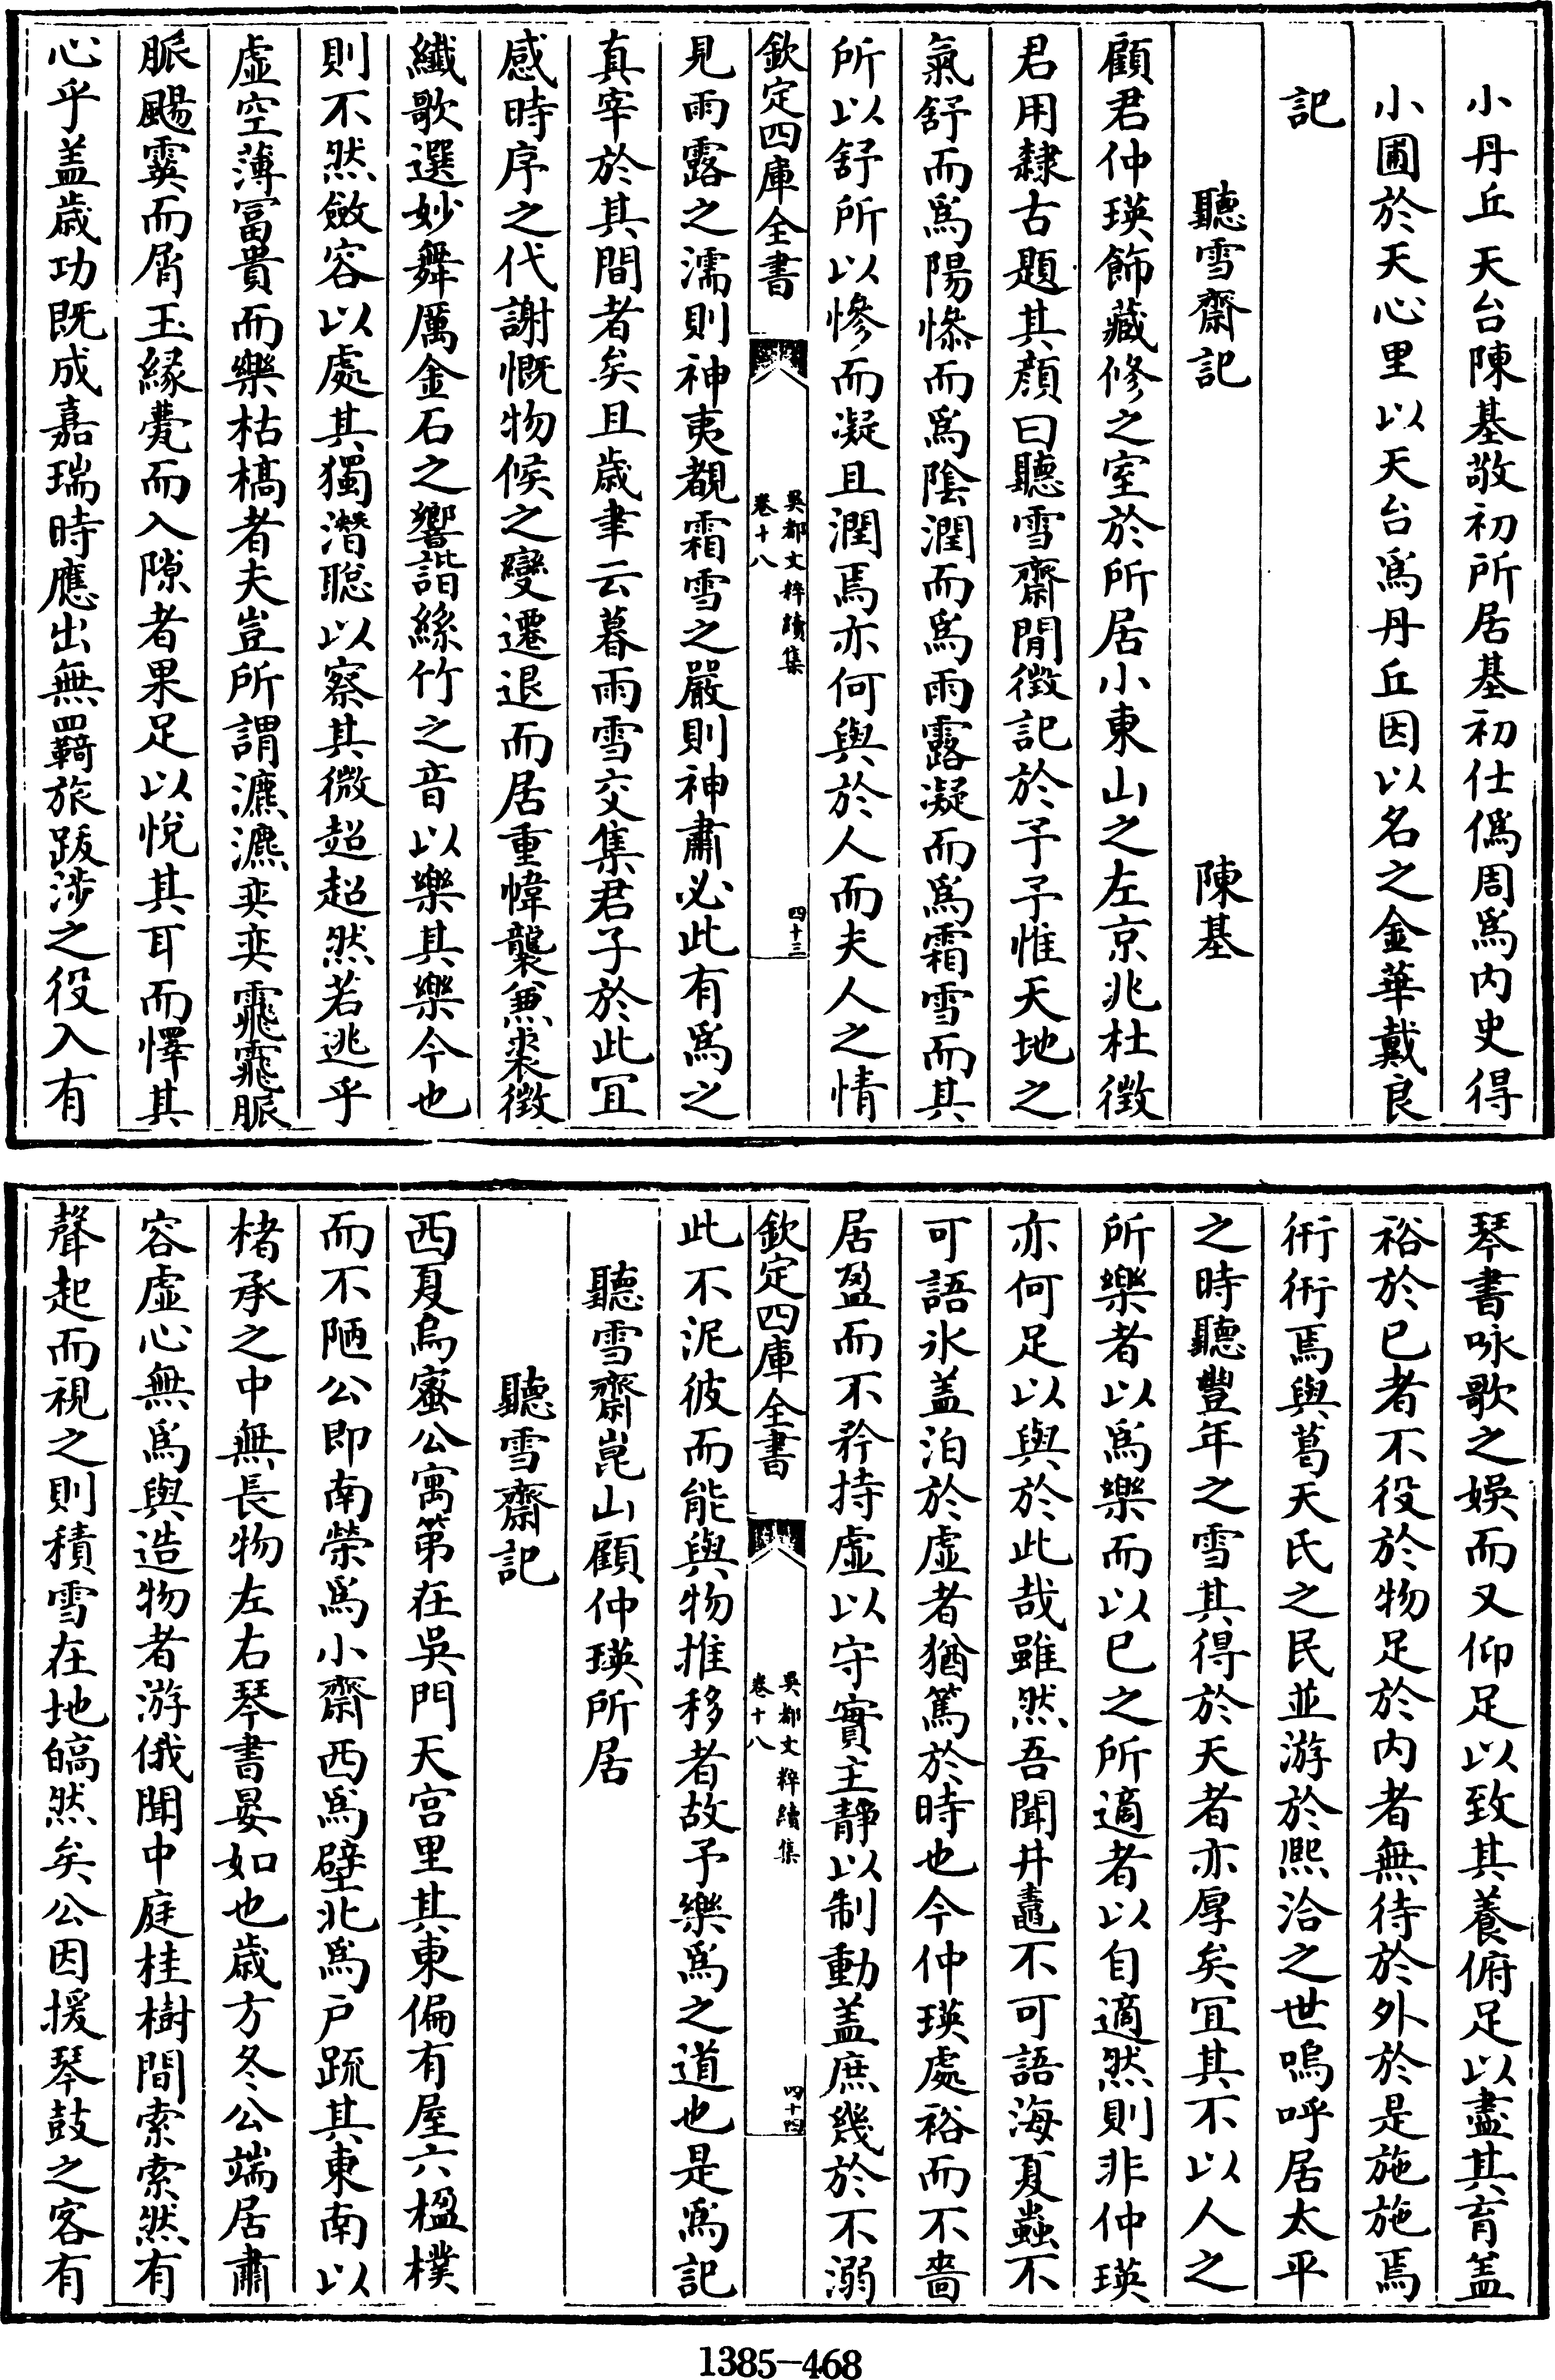 小丹丘天台陳基敬初所居基初仕僞周爲内史得
小圃於天心里以天台爲丹丘因以名之金華戴良
記
聽雪齋記　陳基
顧君仲瑛飾藏修之室於所居小東山之左京兆杜徵
君用隸古題其顔曰聽雪齋閒徵記於予予惟天地之
氣舒而爲陽慘而爲陰潤而爲雨露凝而爲霜雪而其
所以舒所以慘而凝且潤焉亦何與於人而夫人之情
欽定四庫全書　吳都文粹續集　卷十八　四十三
見雨露之濡則神夷覩霜雪之嚴則神肅必此有爲之
真宰於其間者矣且歳聿云暮雨雪交集君子於此冝
感時序之代謝慨物候之變遷退而居重幃襲兼裘徵
纎歌選妙舞厲金石之響諧絲竹之音以樂其樂今也
則不然斂容以處其獨潛聰以察其微超超然若逃乎
虚空薄冨貴而樂枯槁者夫豈所謂瀌瀌奕奕霏霏脈
脈颺霙而屑玉緣甍而入隙者果足以悅其耳而懌其
心乎盖歳功既成嘉瑞時應出無羈旅跋涉之役入有
琴書咏歌之娱而又仰足以致其養俯足以盡其育盖
裕於已者不役於物足於内者無待於外於是施施焉
衎衎焉與葛天氏之民並游於熈洽之世嗚呼居太平
之時聽豐年之雪其得於天者亦厚矣冝其不以人之
所樂者以爲樂而以已之所適者以自適然則非仲瑛
亦何足以與於此哉雖然吾聞井鼃不可語海夏蟲不
可語氷盖泊於虚者猶篤於時也今仲瑛處裕而不嗇
居盈而不矜持虚以守實主靜以制動盖庶幾於不溺
欽定四庫全書　吳都文粹續集　卷十八　四十四
此不泥彼而能與物推移者故予樂爲之道也是爲記
聽雪齋崑山顧仲瑛所居
聽雪齋記
西夏烏蜜公寓第在吳門天宫里其東偏有屋六楹樸
而不陋公即南榮爲小齋西爲壁北爲户疏其東南以
楮承之中無長物左右琴書晏如也歳方冬公端居肅
容虚心無爲與造物者游俄聞中庭桂樹間索索然有
聲起而視之則積雪在地皜然矣公因援琴鼓之客有
1385—468